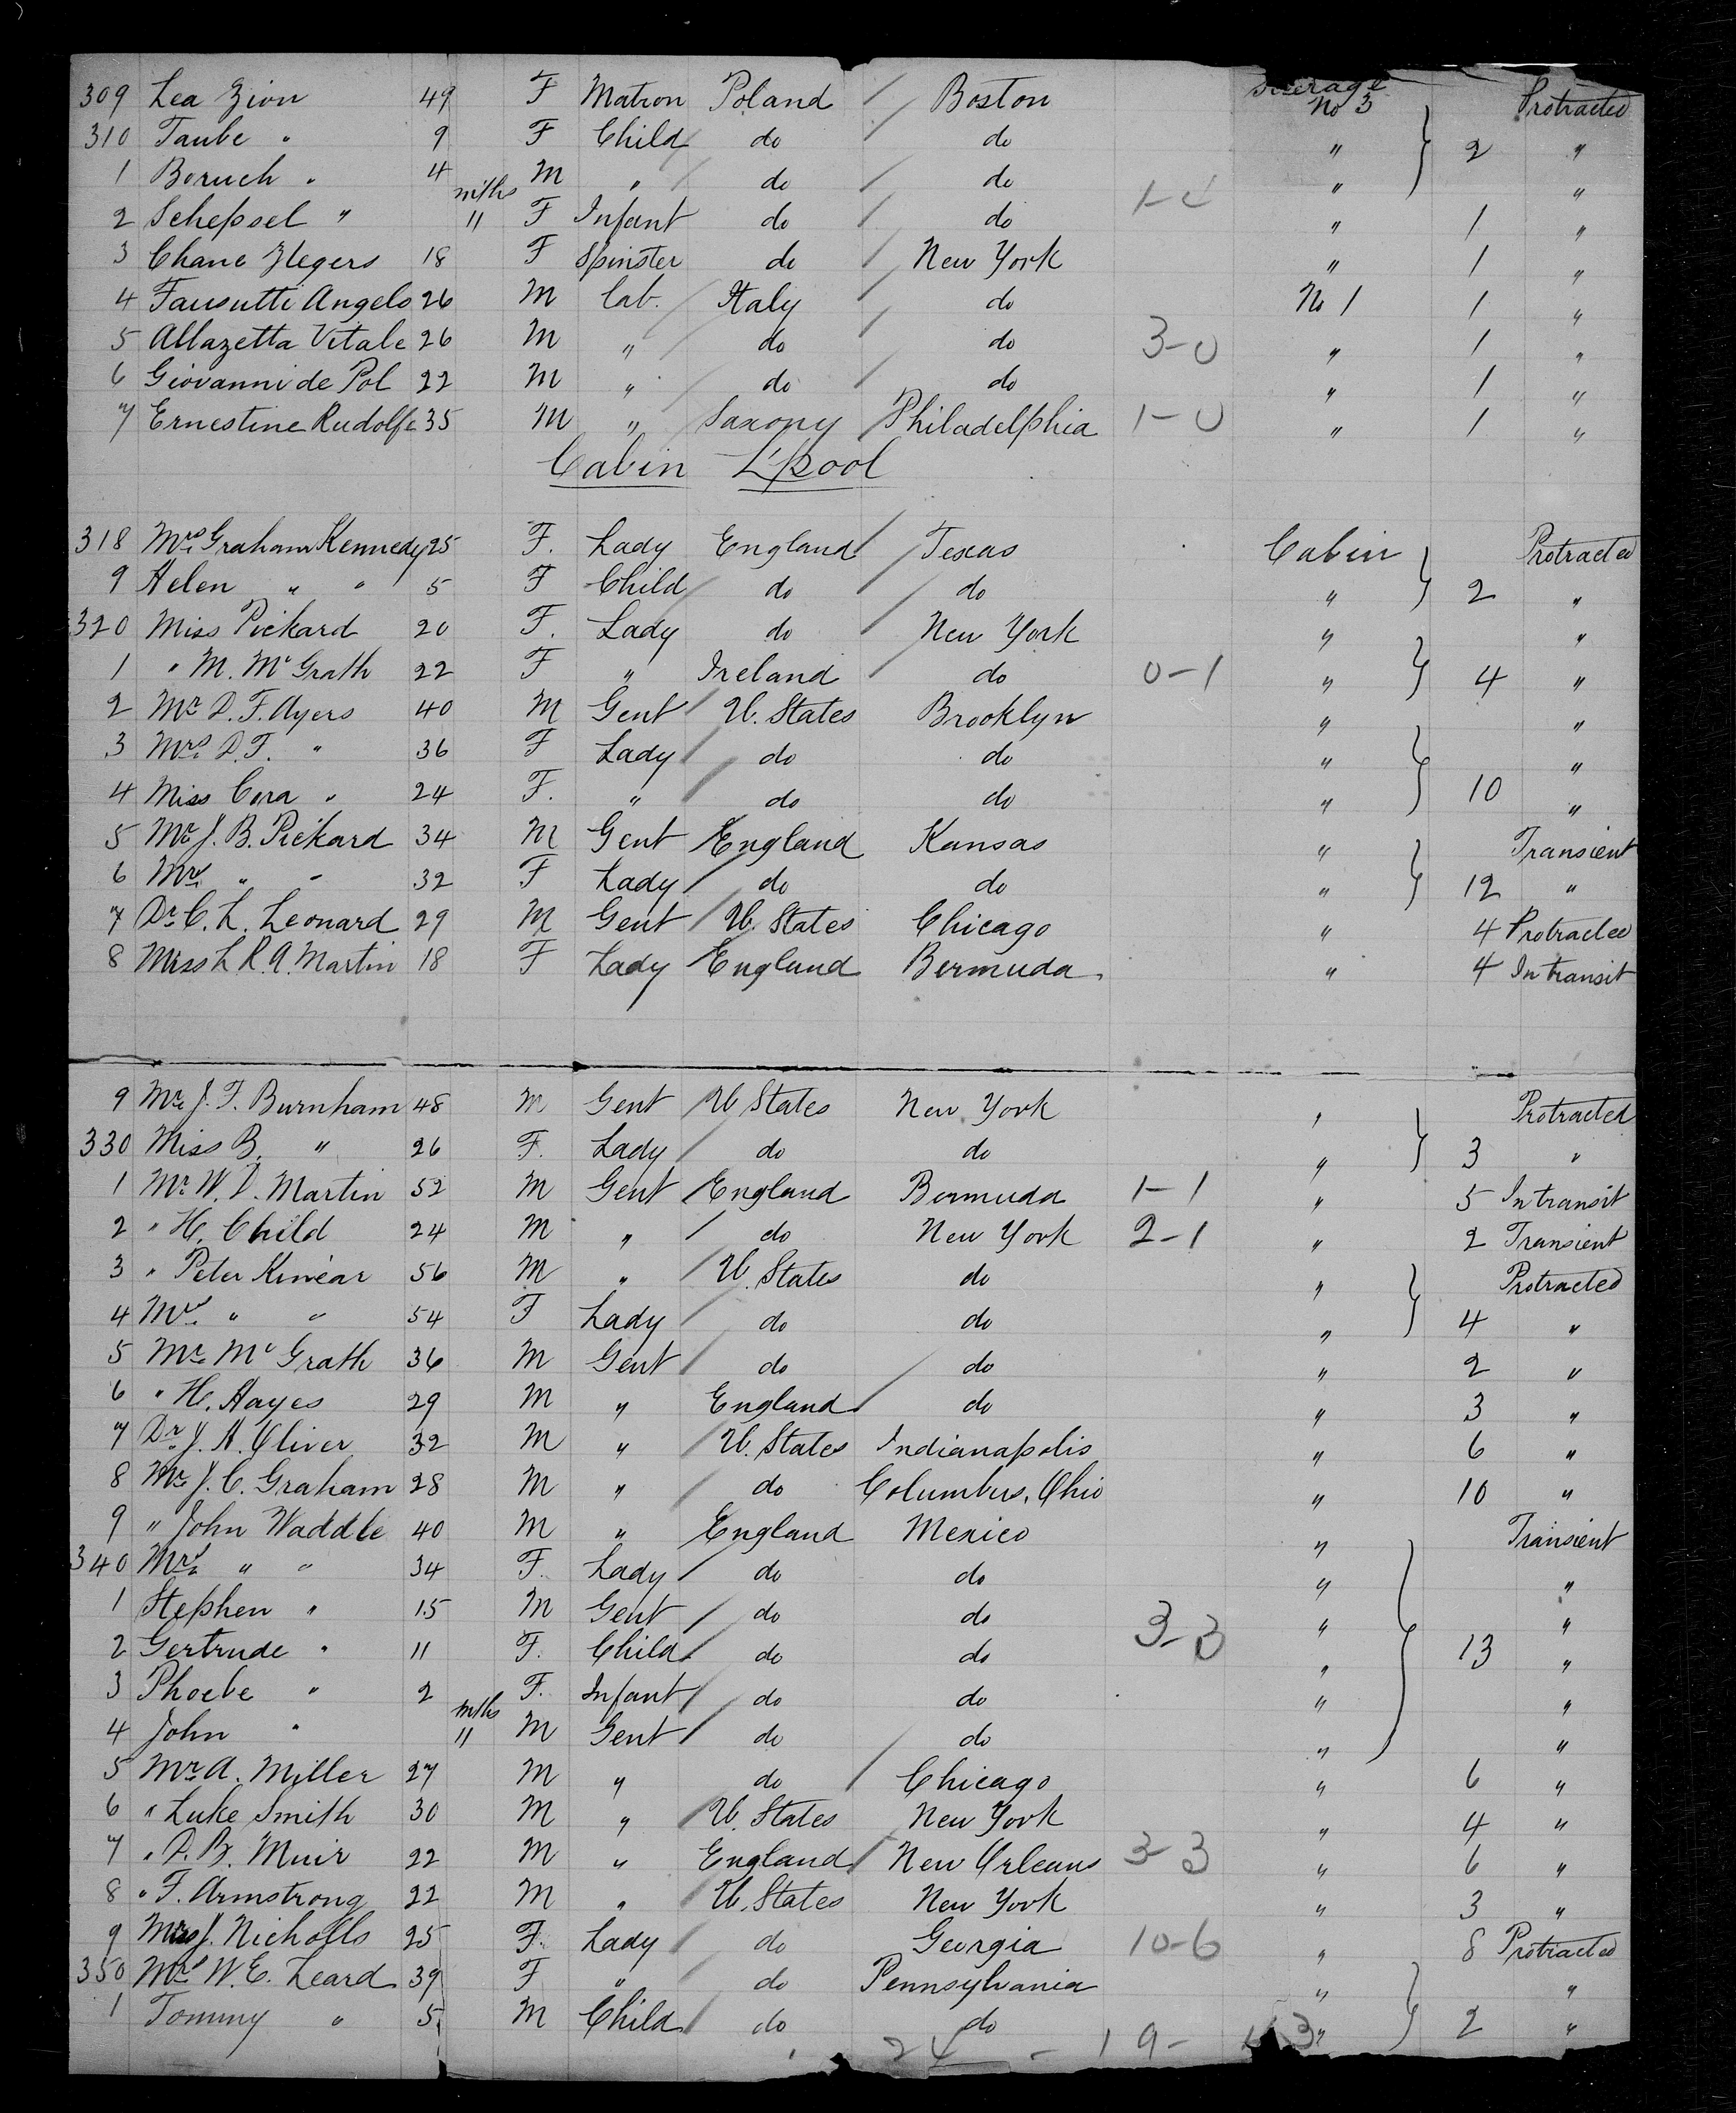 309 Lea Zion 49 F Matron Poland Boston Steerage No 3 Protracted
310 Taube " 9 F Child do do " 2 "
1 Boruch " 4 M " do do " "
2 Schepsel " mths 11 F Infant do do " 1 "
3 Chane 18 F Spinster do New York " 1 "
4 Fausutti Angelo 26 M Lab. Italy do No 1 1 "
5 Allazetta Vitale 26 M " do do 3-0 " 1 "
6 Giovanni de Pol 22 M " do do " 1 "
7 Ernestine Rudolfe 35 M " Saxony Philadelphia 1-0 " 1 "
Cabin L'pool
318 Mrs Graham Kennedy 25 F. Lady England Texas Cabin Protracted
9 Helen " " 5 F Child do do " 2 "
320 Miss Pickard 20 F. Lady do New York " "
1 " M. McGrath 22 F " Ireland do 0-1 " 4 "
2 Mr D. F. Ayers 40 M Gent U. States Brooklyn " "
3 Mrs D. F. " 36 F Lady do do " "
4 Miss Cora " 24 F. " do do " 10 "
5 Mr J. B. Pickard 34 M Gent England Kansas " Transient
6 Mrs " " 32 F Lady do do " 12 "
7 Dr C. L. Leonard 29 M Gent U. States Chicago " 4 Protracted
8 Miss L R. A. Martin 18 F Lady England Bermuda " 4 In transit
9 Mr J. F. Burnham 48 M Gent U States New York " Protracted
330 Miss B. " 26 F. Lady do do " 3 "
1 Mr W. D. Martin 52 M Gent England Bermuda 1-1 " 5 In transit
2 " H. Child 24 M " do New York 2-1 " 2 Transient
3 " Peter Kinear 56 M " U. States do " Protracted
4 Mrs " " 54 F Lady do do " 4 "
5 Mr McGrath 36 M Gent do do " 2 "
6 " H. Hayes 29 M " England do " 3 "
7 Dr J. H. Oliver 32 M " U. States Indianapolis " 6 "
8 Mr J. C. Graham 28 M " do Columbus, Ohio " 10 "
9 " John Waddle 40 M " England Mexico " Transient
340 Mrs " " 34 F. Lady do do " "
1 Stephen " 15 M Gent do do " "
2 Gertrude " 11 F. Child do do 3-3 " 13 "
3 Phoebe " 2 F. Infant do do " "
4 John " mths 11 M Gent do do " "
5 Mr A. Miller 27 M " do Chicago " 6 "
6 " Luke Smith 30 M " U. States New York " 4 "
7 " D. B. Muir 22 M " England New Orleans 3-3 " 6 "
8 " F. Armstrong 22 M " U. States New York " 3 "
9 Mrs J. Nicholls 25 F. Lady do Georgia 10-6 " 8 Protracted
350 Mrs W. E. Leard 39 F " do Pennsylvania " "
1 Tommy " 5 M Child do do " 2 "
24 - 19 -